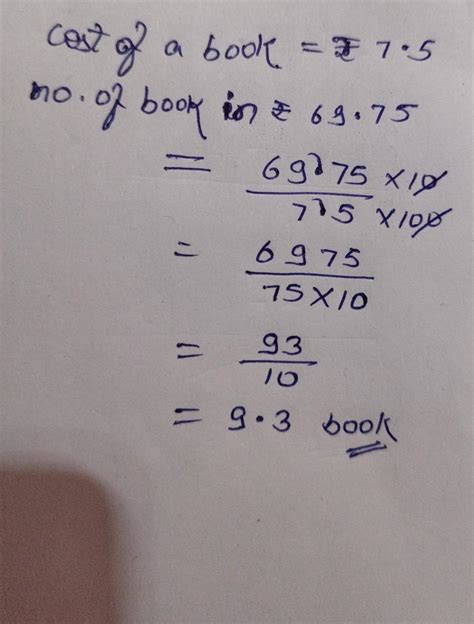 cost of a book = ₹ 7.5
no. of book in ₹ 69.75
= 69.75 × 10
7.5 × 100
= 6975
75 × 10
= 93
10
= 9.3 book